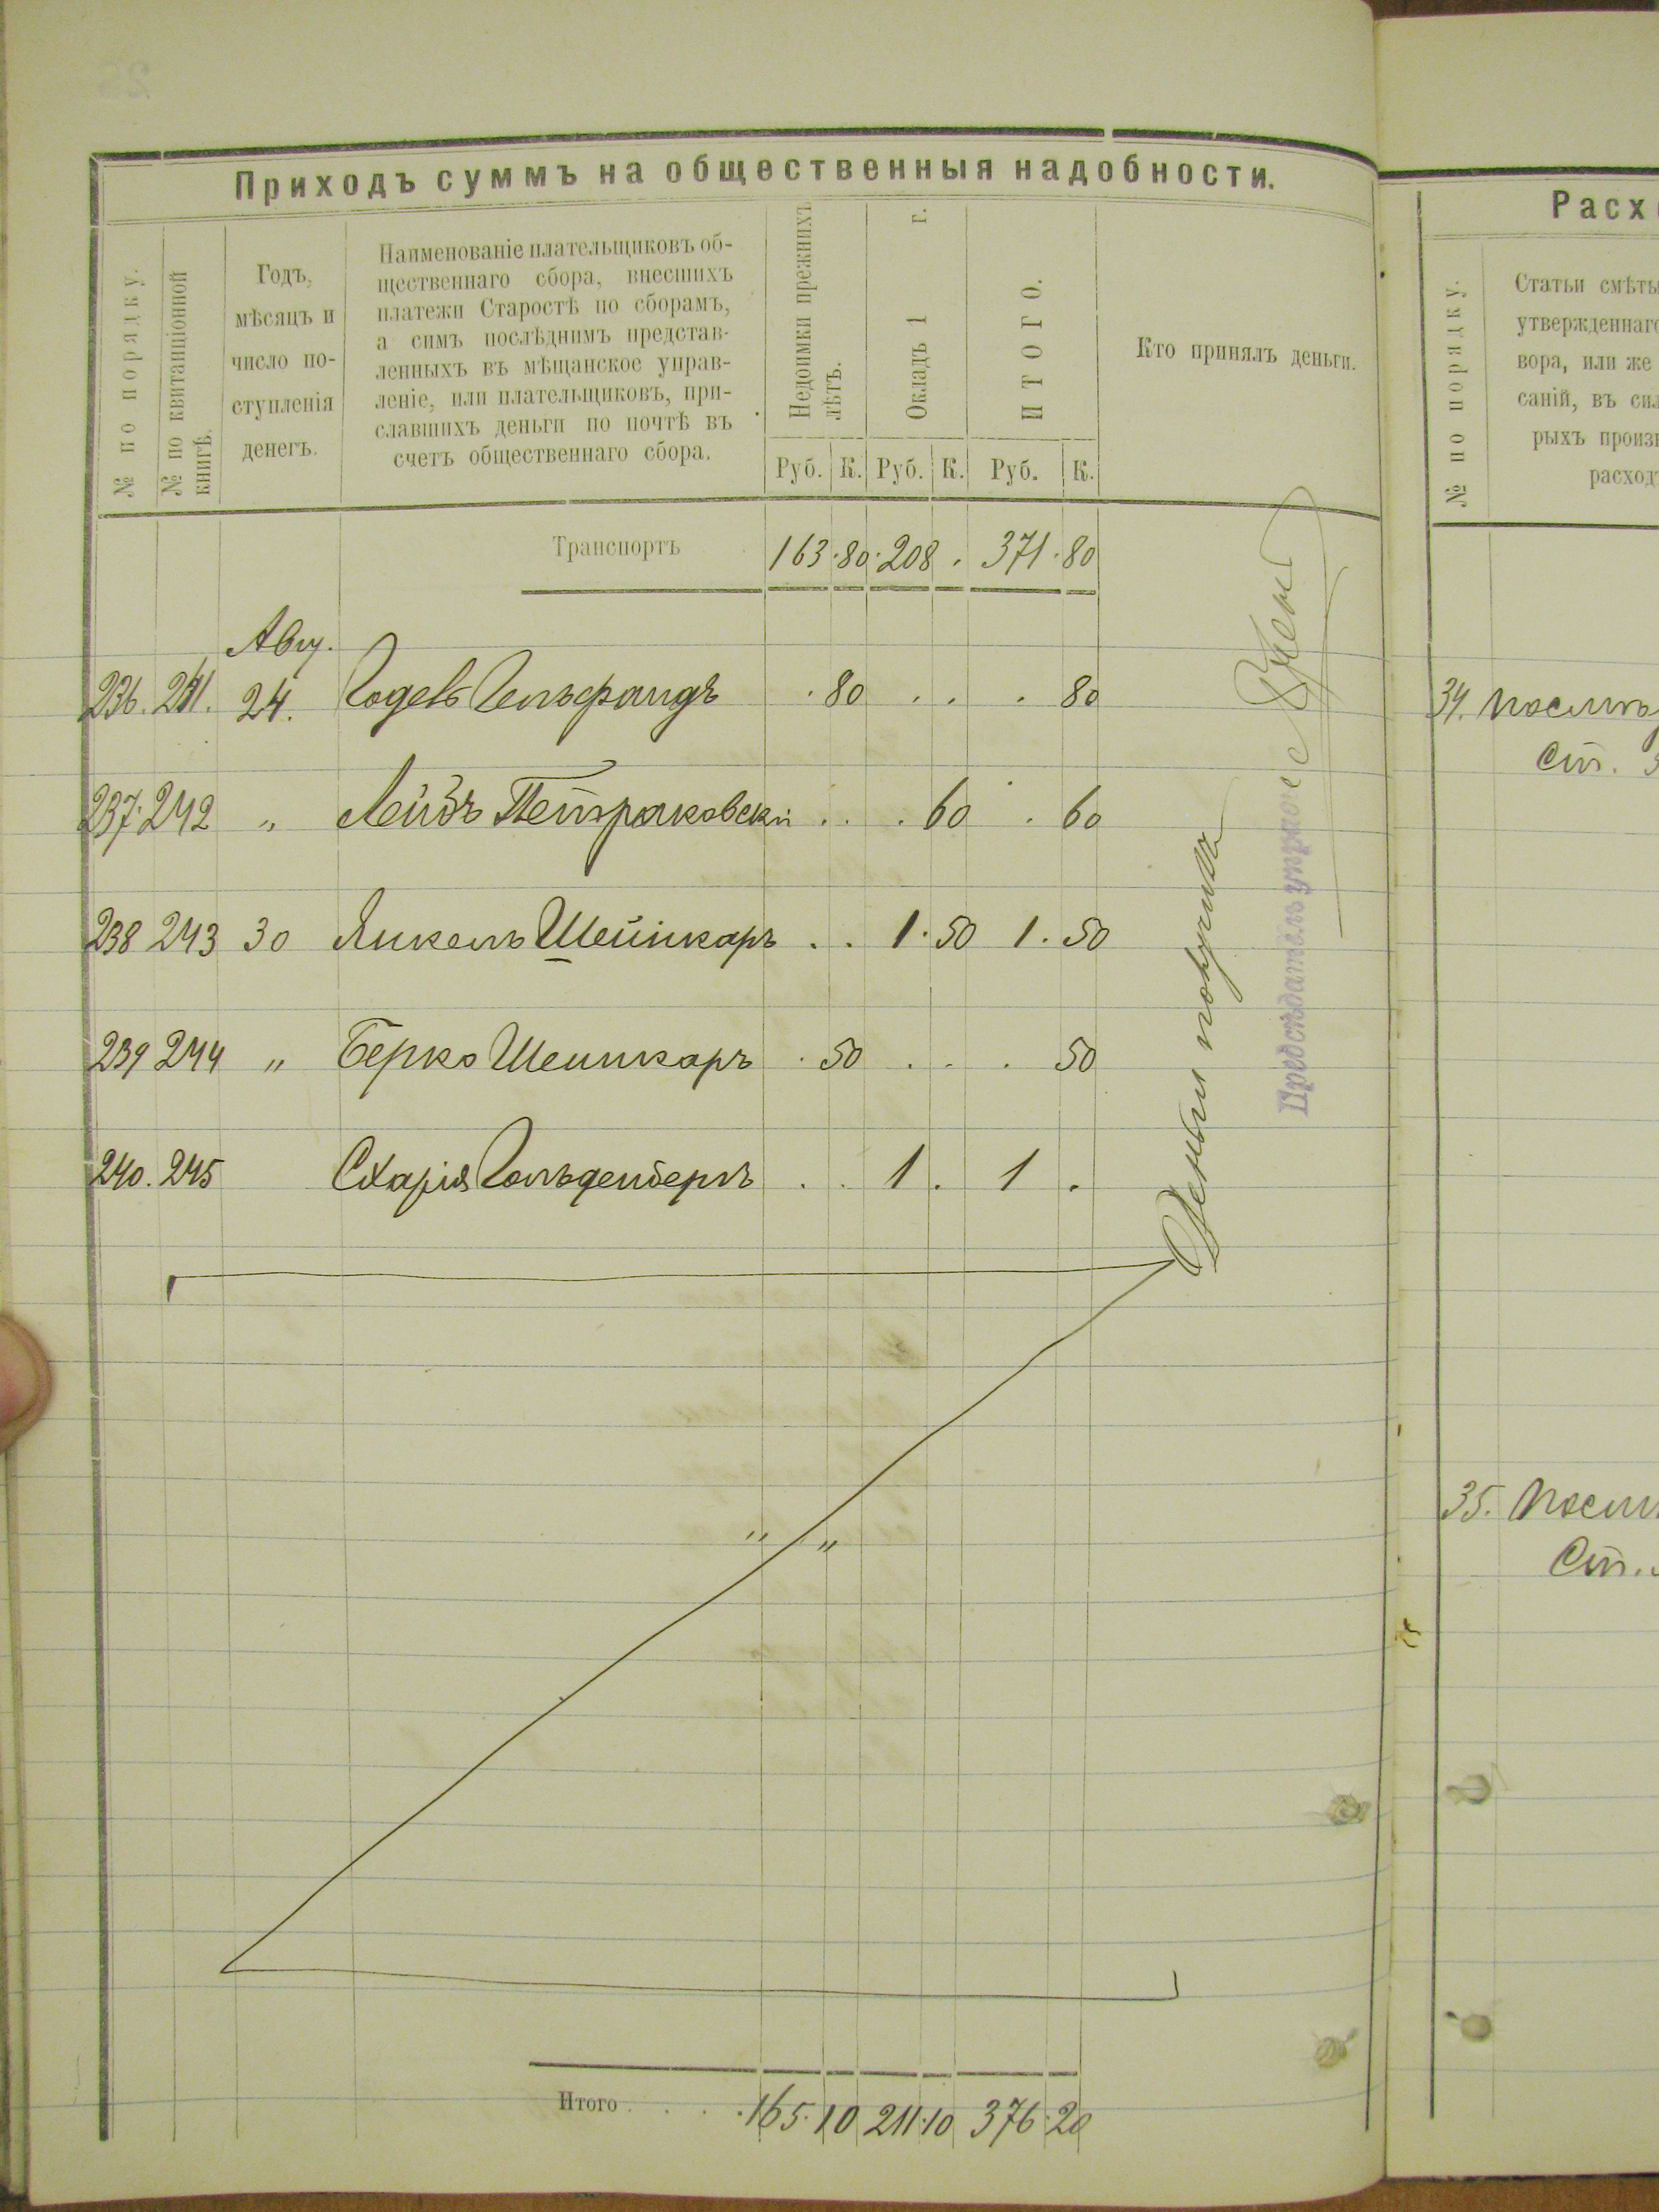 Приходъ суммъ на общественныя надобности.
№ по порядку.
№ по квитанціонной
книгѣ.
Годъ,
мѣсяцъ и
число по-
ступленія
денегъ.
Наименованіе плательщиковъ об-
щественнаго сбора, внесшихъ
платежи Старостѣ по сборамъ,
а симъ послѣднимъ представ-
ленныхъ въ мѣщанское управ-
леніе, или плательщиковъ, при-
славшихъ деньги по почтѣ въ
счетъ общественнаго сбора.
Недоимки прежнихъ
лѣтъ.
Окладъ 1 г.
ИТОГО.
Кто принялъ деньги.
Руб. К. Руб. К. Руб. К.
Транспортъ 163 80 208 . 371 80
Авг.
236. 241. 24. Годеь Гельфандъ . 80 . . . 80
237. 242 „ Лейбъ Петраковскій . . . 60 . 60
238 243 30 Янкель Шейнкаръ . . 1. 50 1. 50
239 244 „ Берко Шеинкаръ . 50 . . . 50
240. 245 Схарія Гольденбергъ . . 1 . 1 .
„ „
Итого . . . . 165. 10 211. 10 376. 20
Деньги получилъ
Предсѣдатель управы
Расх
№ по порядку.
Статьи смѣты
утвержденнаго
вора, или же
саній, въ сил
рыхъ произв
расход
34.
Ст. 3
35.
Ст.